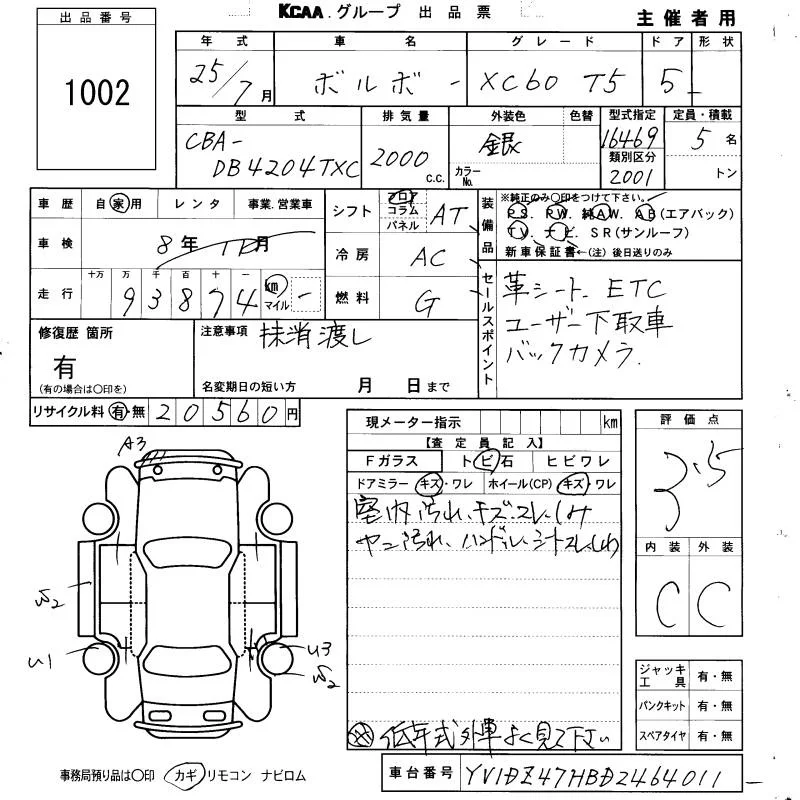 KCAA.グループ 出品票
主催者用
出品番号
1002
年式 車名 グレード ドア 形状
25/7月 ボルボ - XC60 T5 5 -
型式 排気量 外装色 色替 型式指定 定員・積載
CBA-
DB4204TXC 2000 C.C. 銀 カラーNo. 16469 5名
類別区分
2001 トン
車歴 自家用 レンタ 事業.営業車
車検 8年 11月
走行 十万 万 千 百 十 一
93874 km マイル -
シフト フロア コラム パネル AT
冷房 AC
燃料 G
装備品
※純正のみ〇印をつけて下さい。
PS. PW. 純AW. AB(エアバック)
TV. ナビ. SR(サンルーフ)
新車保証書←(注)後日送りのみ
セールスポイント
革シート. ETC
ユーザー下取車
バックカメラ.
修復歴 箇所
有
(有の場合は〇印を)
注意事項 抹消渡し
名変期日の短い方 月 日まで
リサイクル料 有・無 20560円
現メーター指示 km
【査定員記入】
Fガラス トビ石 ヒビワレ
ドアミラー キズ・ワレ ホイール(CP) キズ・ワレ
室内汚れ、キズ、スレ、しみ
ヤニ汚れ、ハンドル、シートスレ、しわ
低年式外車よく見て下さい
評価点
3.5
内装 外装
C C
ジャッキ工具 有・無
パンクキット 有・無
スペアタイヤ 有・無
A3
W2
U1
U3
W2
事務局預り品は〇印 カギ リモコン ナビロム
車台番号 YV1DZ47HBD2464011